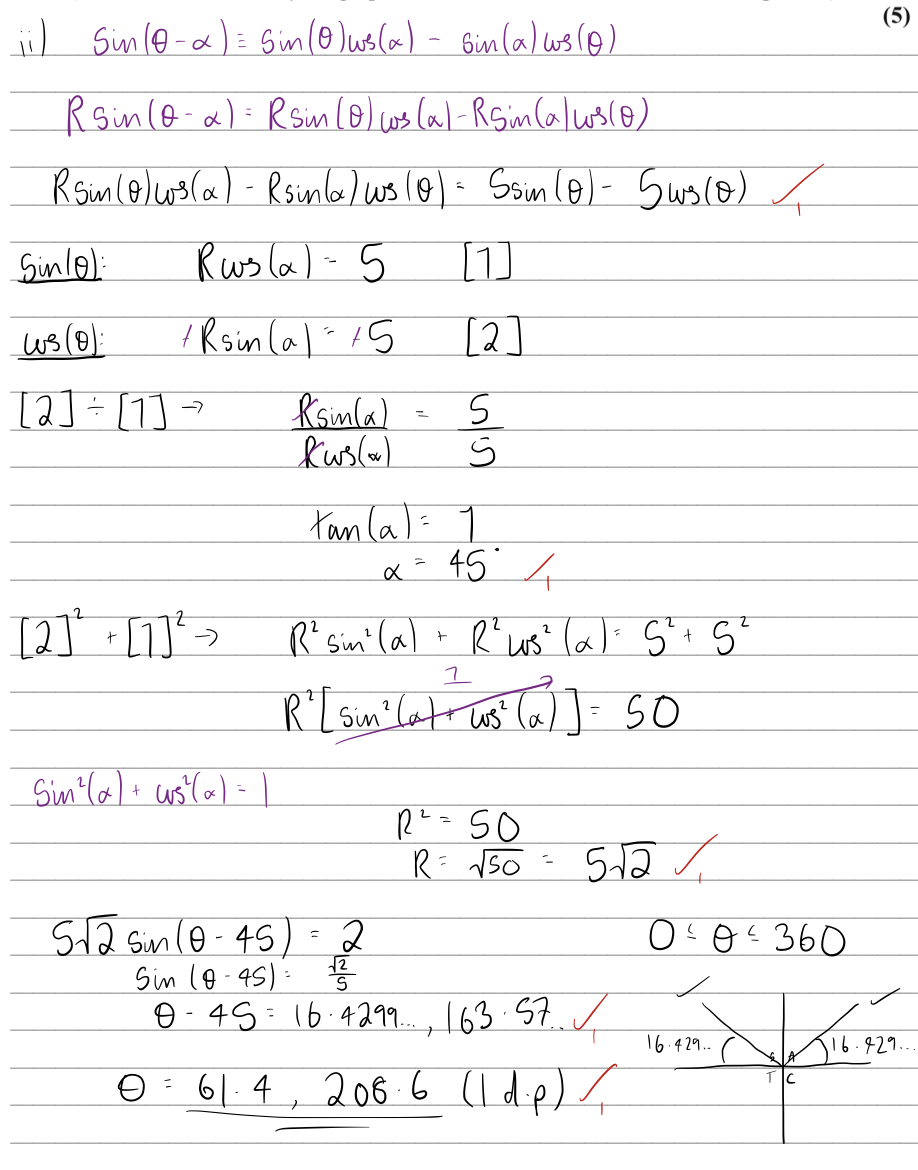 (5)
ii) Sin(θ-α) ≡ Sin(θ)cos(α) - sin(α)cos(θ)
Rsin(θ-α) = Rsin(θ)cos(α) - Rsin(α)cos(θ)
Rsin(θ)cos(α) - Rsin(α)cos(θ) = 5sin(θ) - 5cos(θ) ✓1
Sin(θ): Rcos(α) = 5 [1]
cos(θ): +Rsin(α) = +5 [2]
[2] ÷ [1] → Rsin(α)/Rcos(α) = 5/5
tan(α) = 1
α = 45° ✓1
[2]² + [1]² → R²sin²(α) + R²cos²(α) = 5² + 5²
1
R²[sin²(α) + cos²(α)] = 50
Sin²(α) + cos²(α) = 1
R² = 50
R = √50 = 5√2 ✓1
5√2 sin(θ-45) = 2 0 ≤ θ ≤ 360
Sin(θ-45) = √2/5
θ-45 = 16.4299..., 163.57.. ✓1
✓ ✓
16.429.. S A 16.429...
T C
θ = 61.4, 208.6 (1 d.p) ✓1